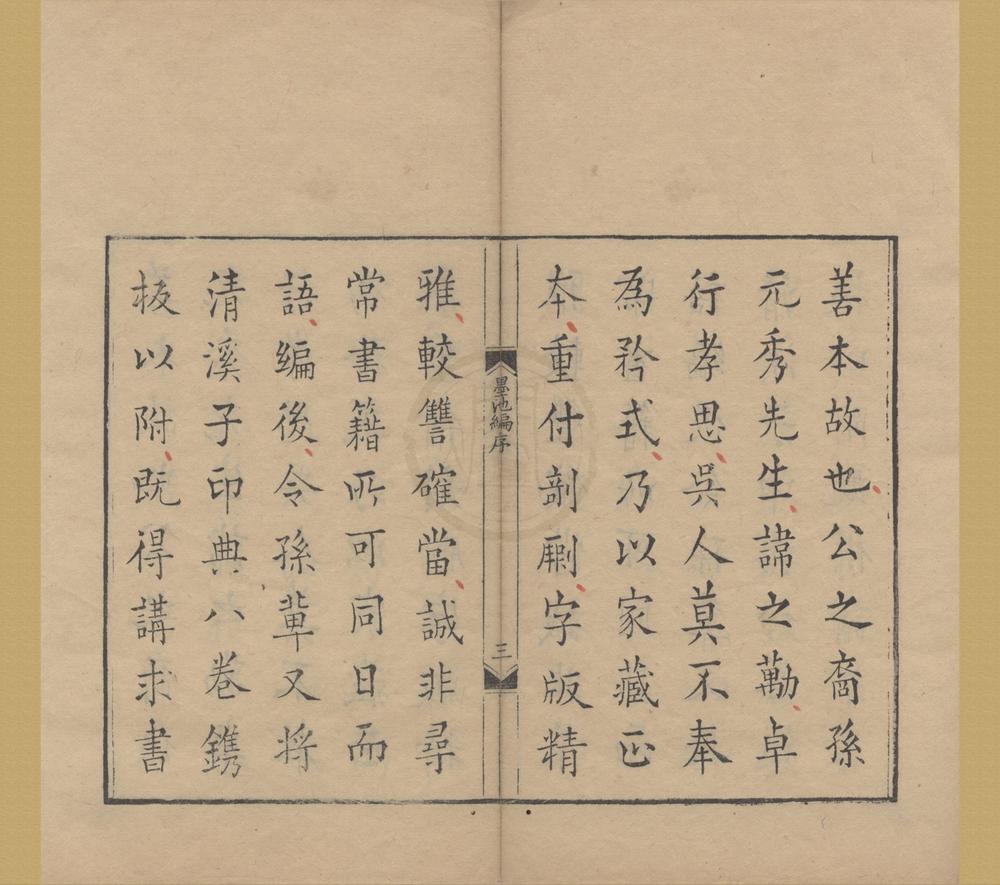 善本故也公之裔孫
元秀先生諱之勱卓
行孝思吳人莫不奉
為矜式乃以家藏正
本重付剞劂字版精
墨池編序
三
雅較讐確當誠非尋
常書籍所可同日而
語編後令孫軰又將
清溪子印典八卷鐫
板以附既得講求書